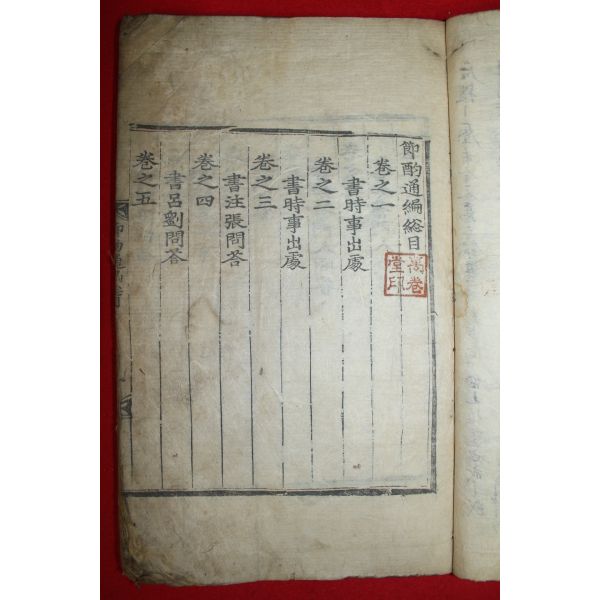 節酌通編総目
卷之一
書時事出處
卷之二
書時事出處
卷之三
書汪張問答
卷之四
書呂劉問答
卷之五
萬卷
堂印